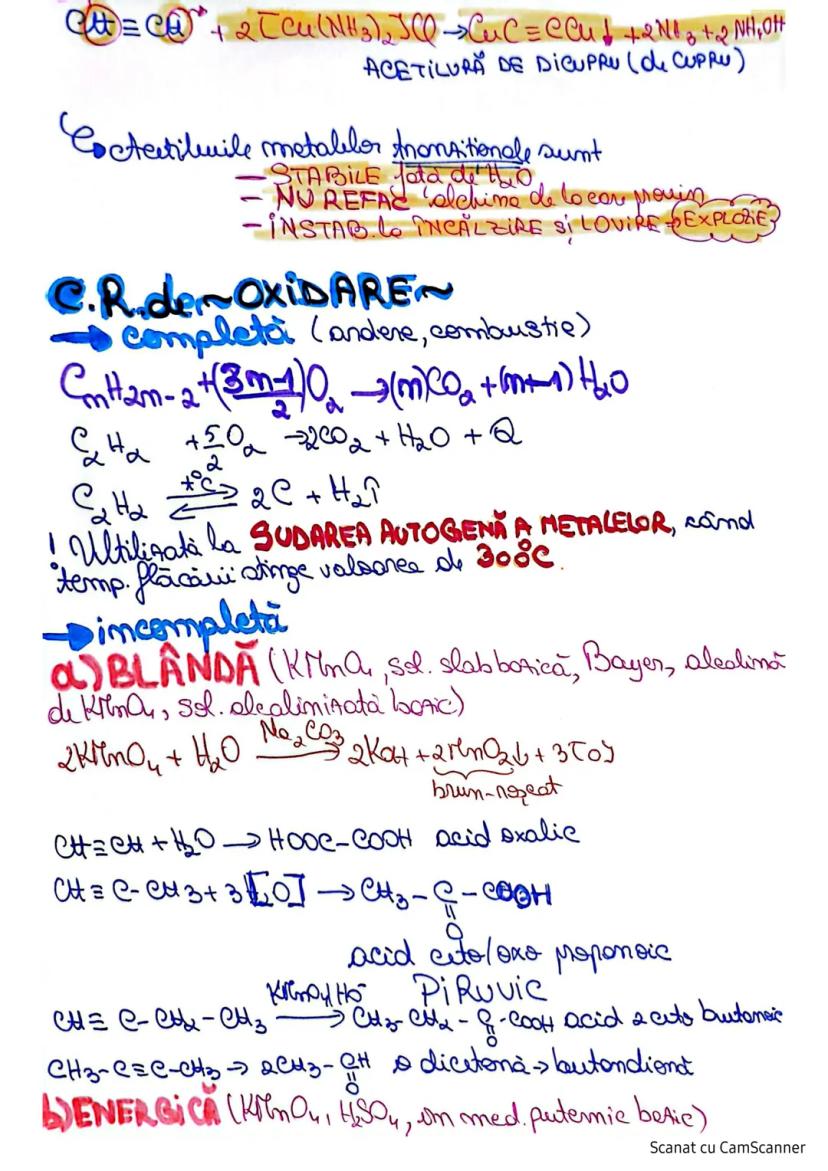 CH≡CH + 2[Cu(NH3)2]Cl → CuC≡CCu↓ + 2NH3 + 2NH4OH
ACETILURĂ DE DICUPRU (de CUPRU)
Acetilurile metalelor tranziționale sunt
– STABILE față de H2O
– NU REFAC alchina de la care provin
– INSTAB. la ÎNCĂLZIRE ȘI LOVIRE → EXPLOZIE
C.R. de ~OXIDARE~
→ completă (ardere, combustie)
CnH2n-2 + (3n-1)/2 O2 → (n)CO2 + (n+1)H2O
C2H2 + 5/2 O2 → 2CO2 + H2O + Q
C2H2 ⇌ t°C 2C + H2↑
! Utilizată la SUDAREA AUTOGENĂ A METALELOR, când
temp. flăcării atinge valoarea de 300°C.
→ incompletă
a) BLÂNDĂ (KMnO4, sol. slab bazică, Bayer, alcalină
de KMnO4, sol. alcalinizată bazic)
2KMnO4 + H2O Na2CO3→ 2KOH + 2MnO2↓ + 3[O]
brun-roșcat
CH≡CH + H2O → HOOC–COOH acid oxalic
CH≡C–CH3 + 3[O] → CH3–C–COOH
||
O
acid ceto/oxo propanoic
PIRUVIC
KMnO4/HO-
CH≡C–CH2–CH3 → CH3–CH2–C–COOH acid 2 ceto butanoic
||
O
CH3–C≡C–CH3 → 2CH3–CH o dicetonă → butandionă
||
O
b) ENERGICĂ (KMnO4, H2SO4, în med. puternic bazic)
Scanat cu CamScanner